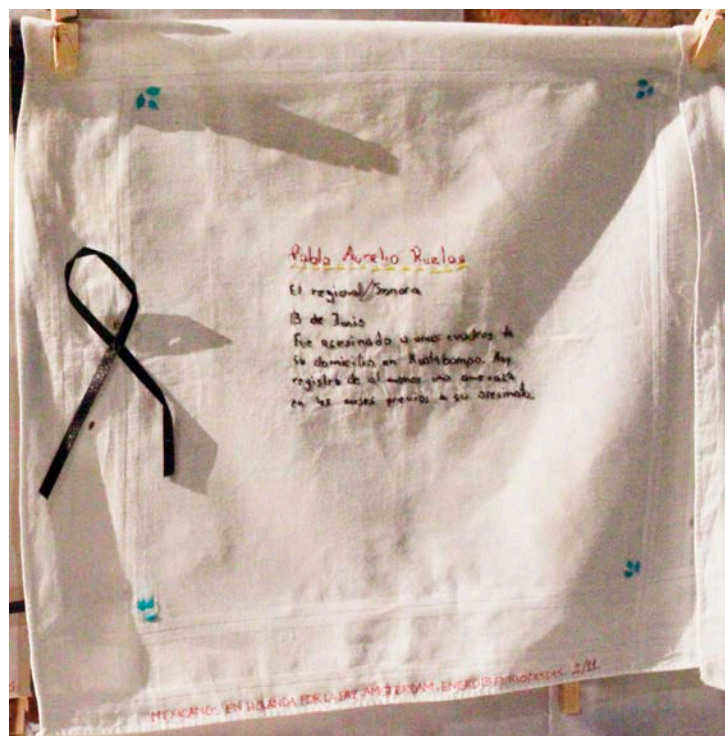 Pablo Aurelio Ruelas
El regional/Sonora
13 de Junio
Fue asesinado a unas cuadras de
su domicilio en Huatabampo. Hay
registro de al menos una amenaza
en los meses previos a su asesinato
MEXICANOS EN HOLANDA POR LA PAZ. AMSTERDAM. ENERO 13. PERIODISTAS. 2/11.